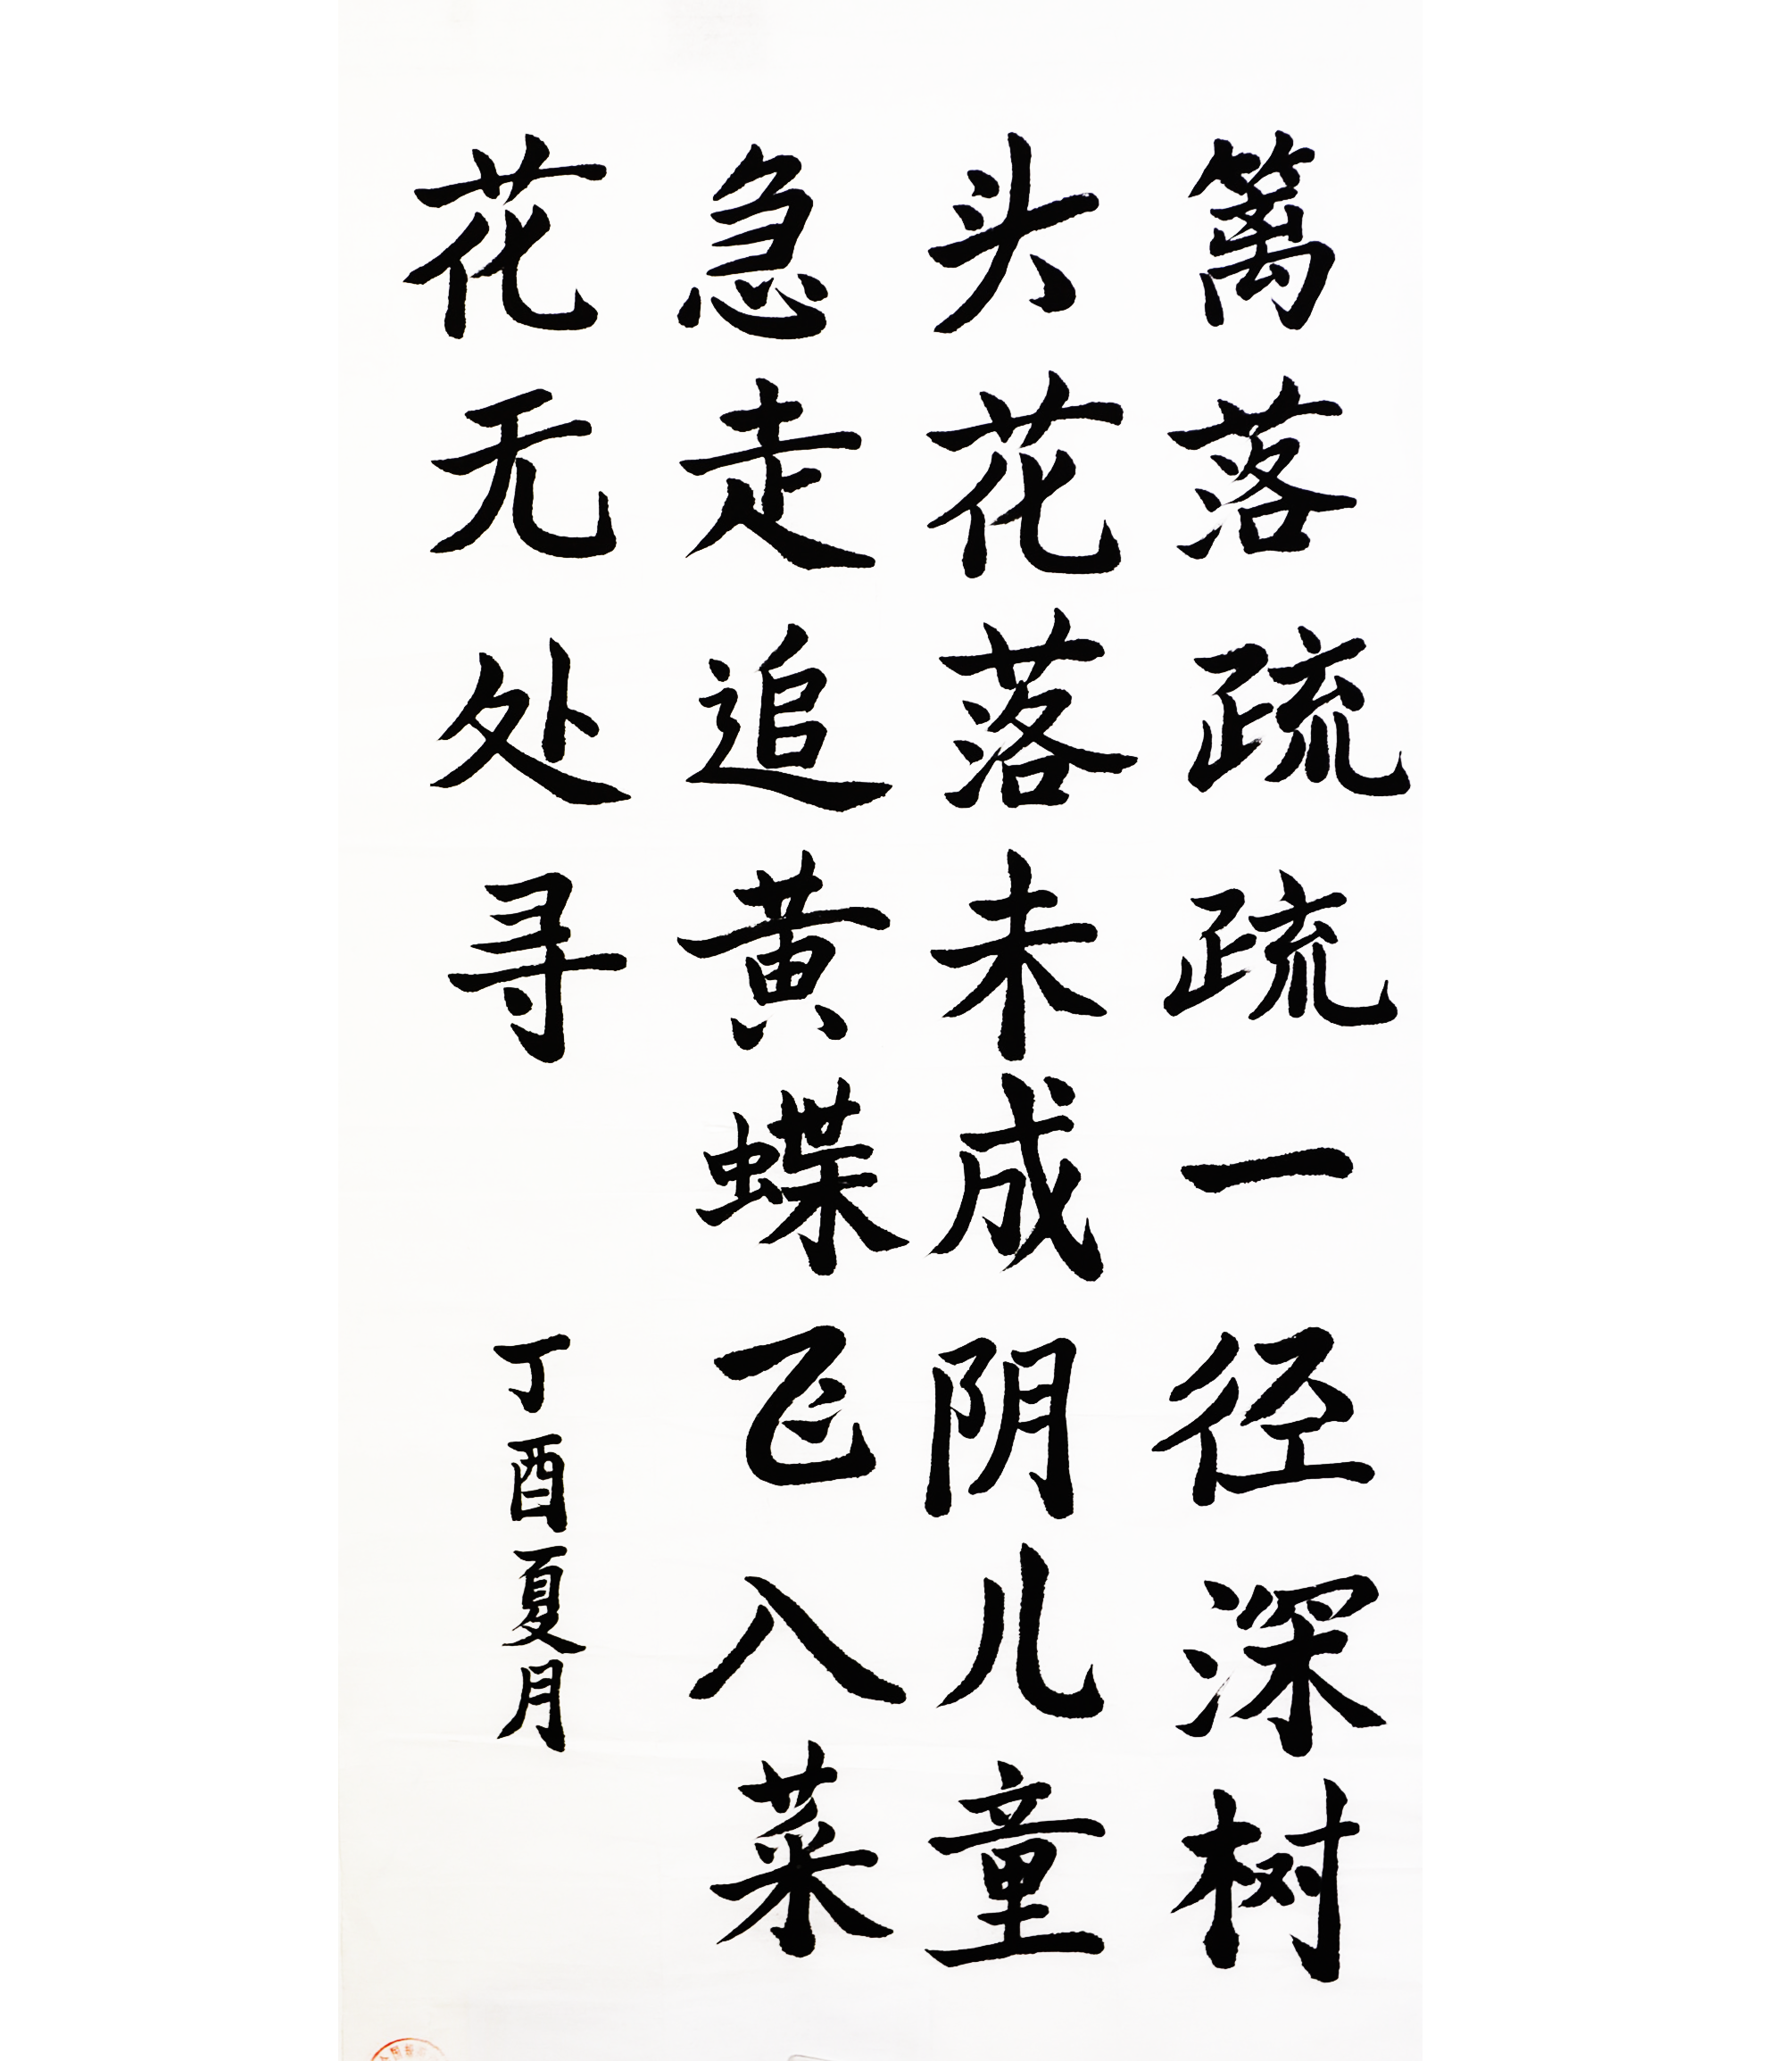 篱落疏疏一径深树
头花落未成阴儿童
急走追黄蝶飞入菜
花无处寻
丁酉夏月